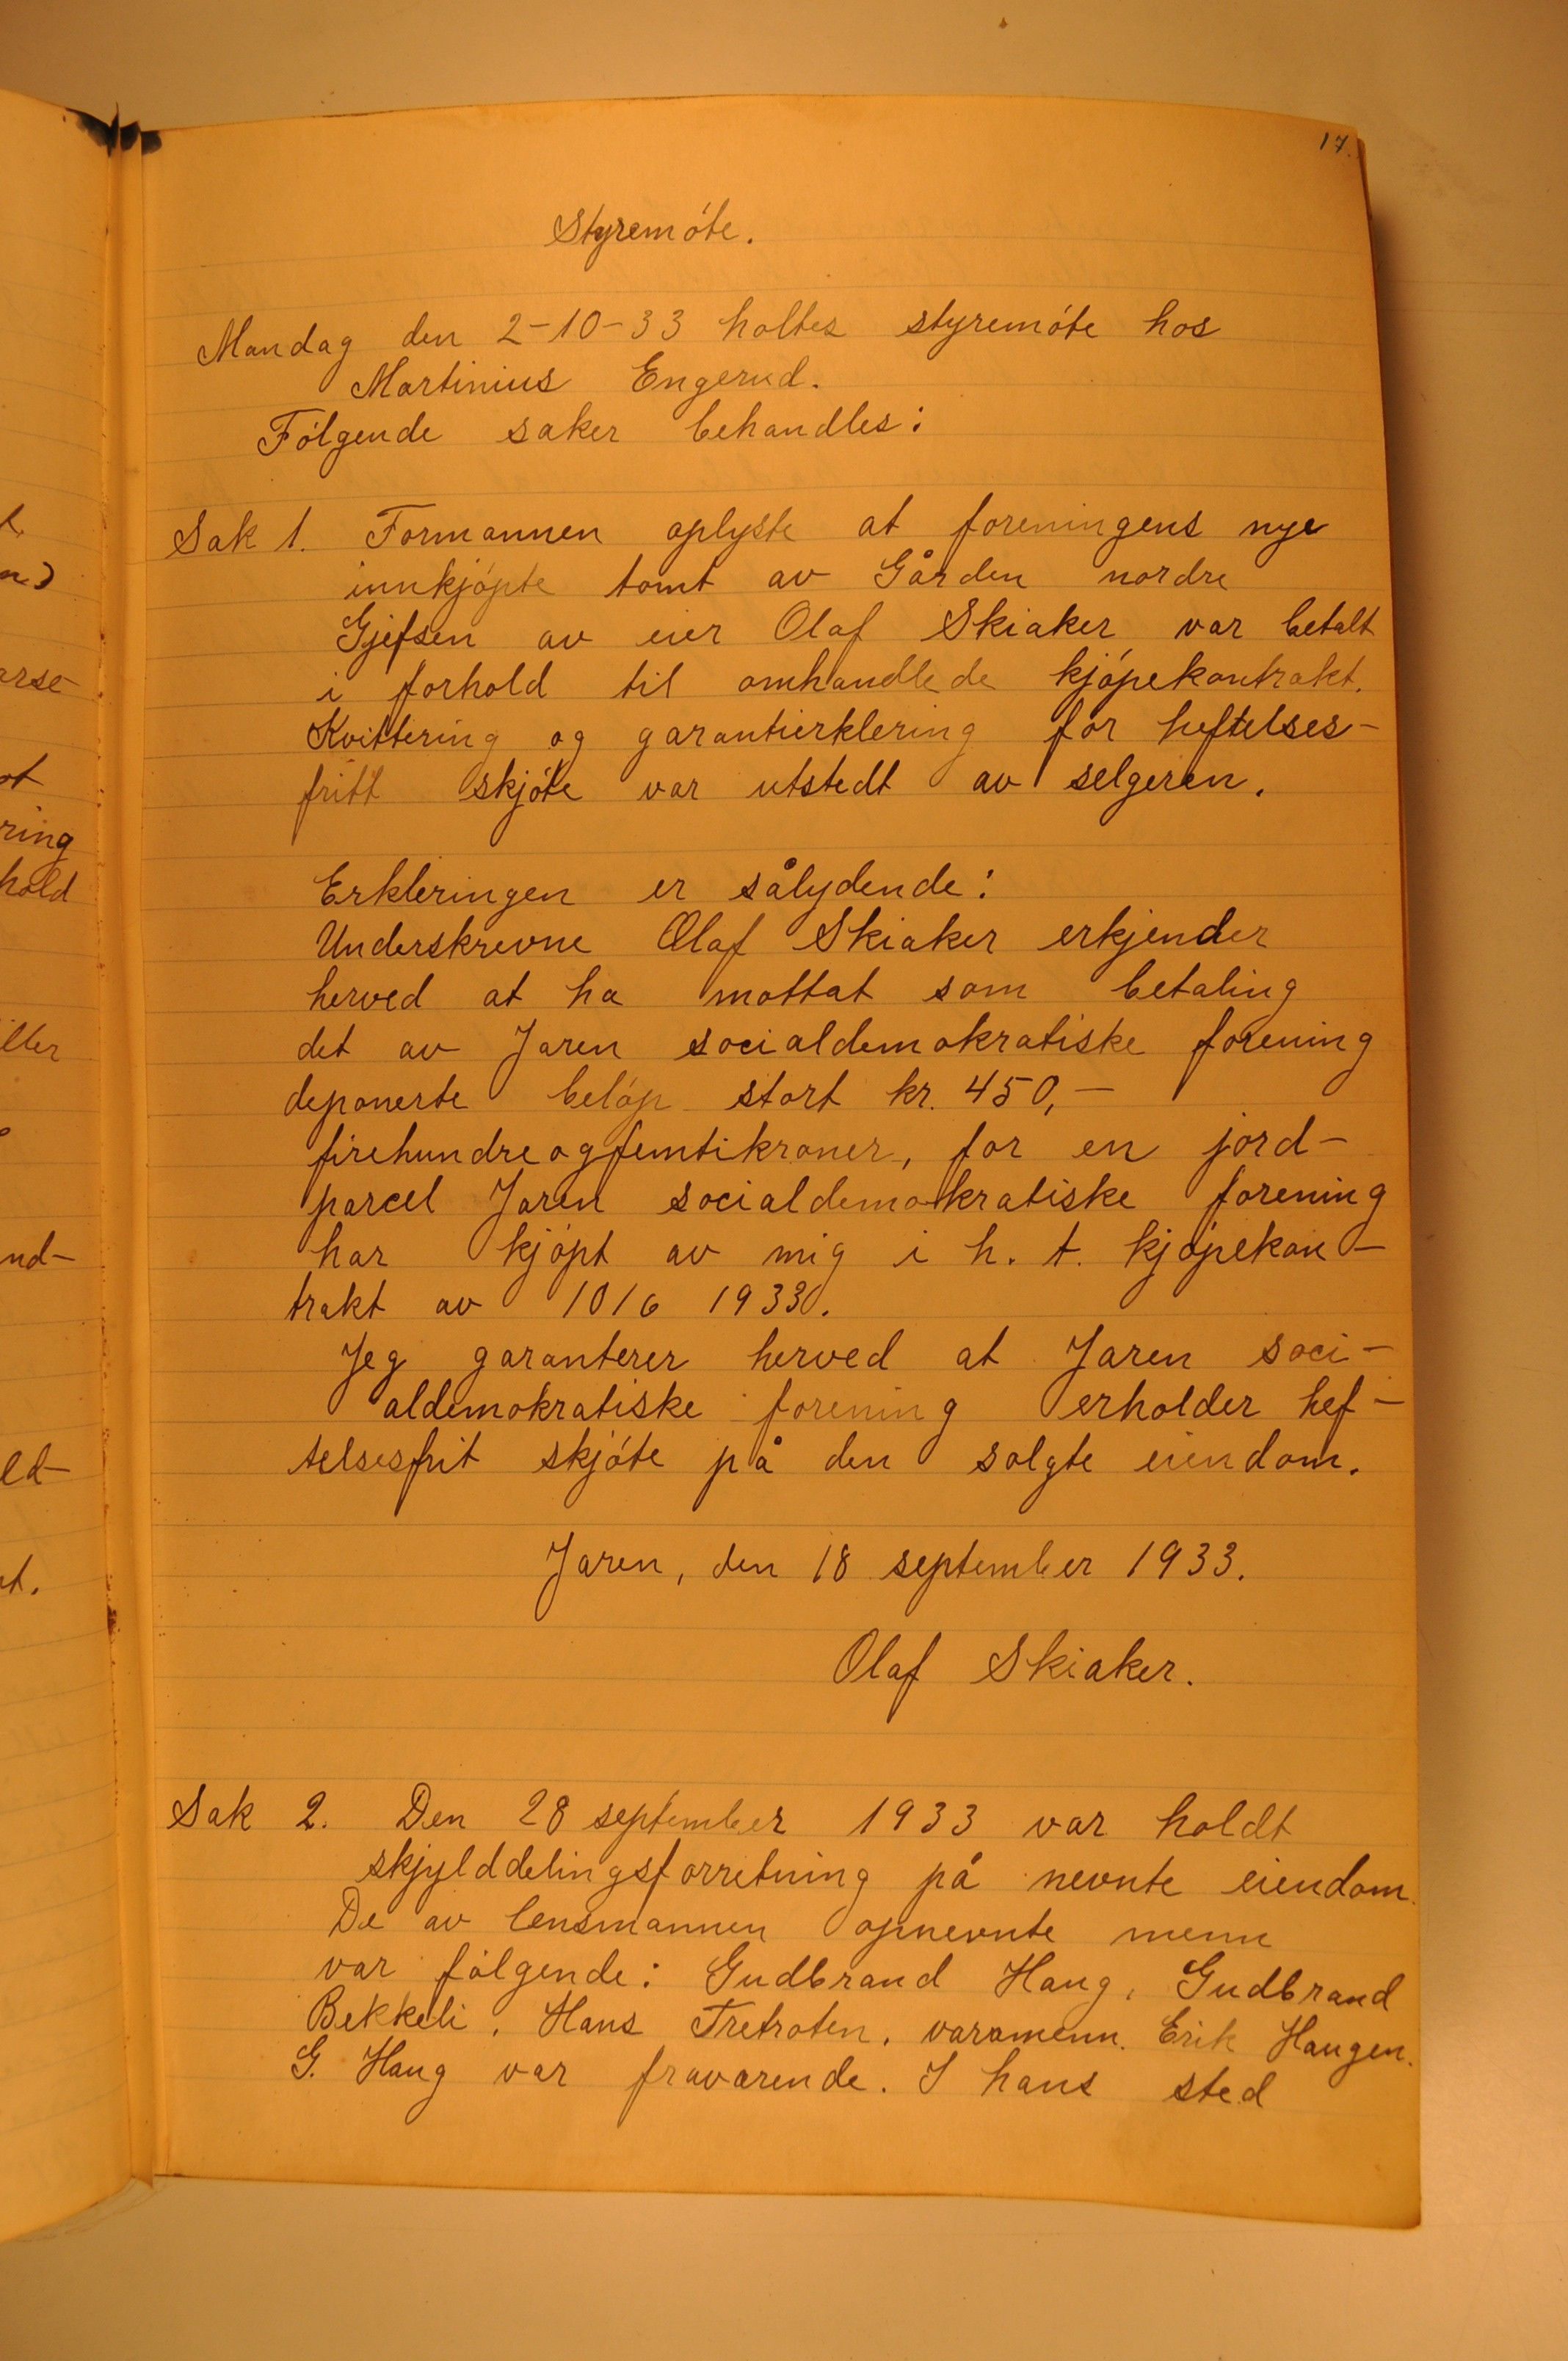 17.
Styremóte.
Mandag den 2-10-33 holtes styremóte hos
Martinius Engerud.
Fólgende saker behandles:
Sak 1. Formannen oplyste at foreningens nye
innkjópte tomt av Gården nordre
Gjefsen av eier Olaf Skiaker var betalt
i forhold til omhandlede kjópekontrakt.
Kvittering og garantierklering for heftelses-
fritt skjóte var utstedt av selgeren.
Erkleringen er sålydende:
Underskrevne Olaf Skiaker erkjender
herved at ha mottat som betaling
det av Jaren socialdemokratiske forening
deponerte belóp stort kr. 450,-
firehundreogfemtikroner, for en jord-
parcel Jaren socialdemokratiske forening
har kjópt av mig i h. t. kjópekon-
trakt av 10/6 1933.
Jeg garanterer herved at Jaren soci-
aldemokratiske forening erholder hef-
telsesfrit skjóte på den solgte eiendom.
Jaren, den 18 september 1933.
Olaf Skiaker.
Sak 2. Den 28 september 1933 var holdt
skjylddelingsforretning på nevnte eiendom.
De av lensmannen opnevnte menn
var fólgende: Gudbrand Haug, Gudbrand
Bekkeli, Hans Tretroten, varamenn. Erik Haugen.
G. Haug var fraværende. I hans sted